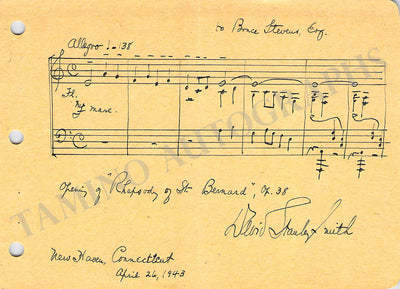 to Bruce Stevens, Esq.
Allegro ♩=138
Fl.
mf marc.
Opening of "Rhapsody of St. Bernard", Op. 38
David Stanley Smith
New Haven, Connecticut
April 26, 1943
TAMINO AUTOGRAPHS